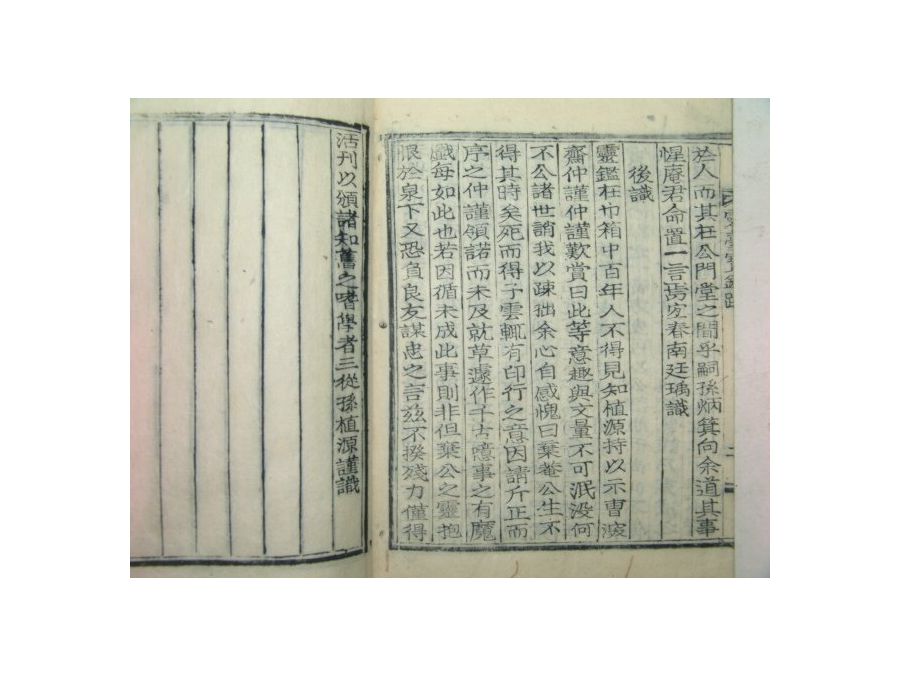 於人而其在公門堂之間乎嗣孫炳箕向余道其事
惺庵君命置一言焉宜春南廷瑀識
後識
靈鑑在巾箱中百年人不得見知植源持以示曺深
齋仲謹仲謹歎賞曰此等意趣與文量不可泯没何
不公諸世誚我以疎拙余心自感愧曰棄菴公生不
得其時矣死而得子雲輒有印行之意因請斤正而
序之仲謹領諾而未及就草遽作千古噫事之有魔
戱每如此也若因循未成此事則非但棄公之靈抱
恨於泉下又恐負良友謀忠之言玆不揆殘力僅得
活刊以頒諸知舊之嗜學者三從孫植源謹識